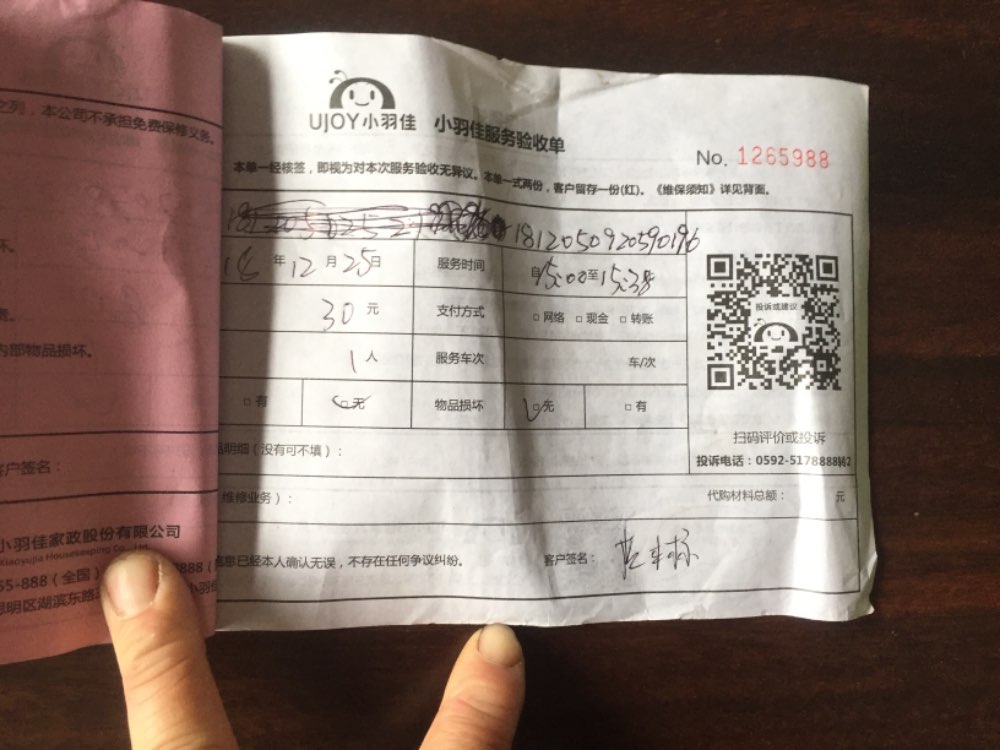 之列，本公司不承担免费保修义务。
坏。
内部物品损坏。
客户签名：
小羽佳家政股份有限公司
Xiaoyujia Housekeeping Co., Ltd.
55-888（全国）
思明区湖滨东路
UJOY小羽佳 小羽佳服务验收单
No. 1265988
本单一经核签，即视为对本次服务验收无异议。本单一式两份，客户留存一份(红)。《维保须知》详见背面。
1812050920590196
年12月25日 服务时间 自15:00至15:38
30元 支付方式 □网络 □现金 □转账
1人 服务车次 车/次
□有 □无 物品损坏 □无 □有
投诉或建议
扫码评价或投诉
投诉电话：0592-5178888转2
品明细（没有可不填）：
维修业务）： 代购材料总额： 元
信息已经本人确认无误，不存在任何争议纠纷。 客户签名：